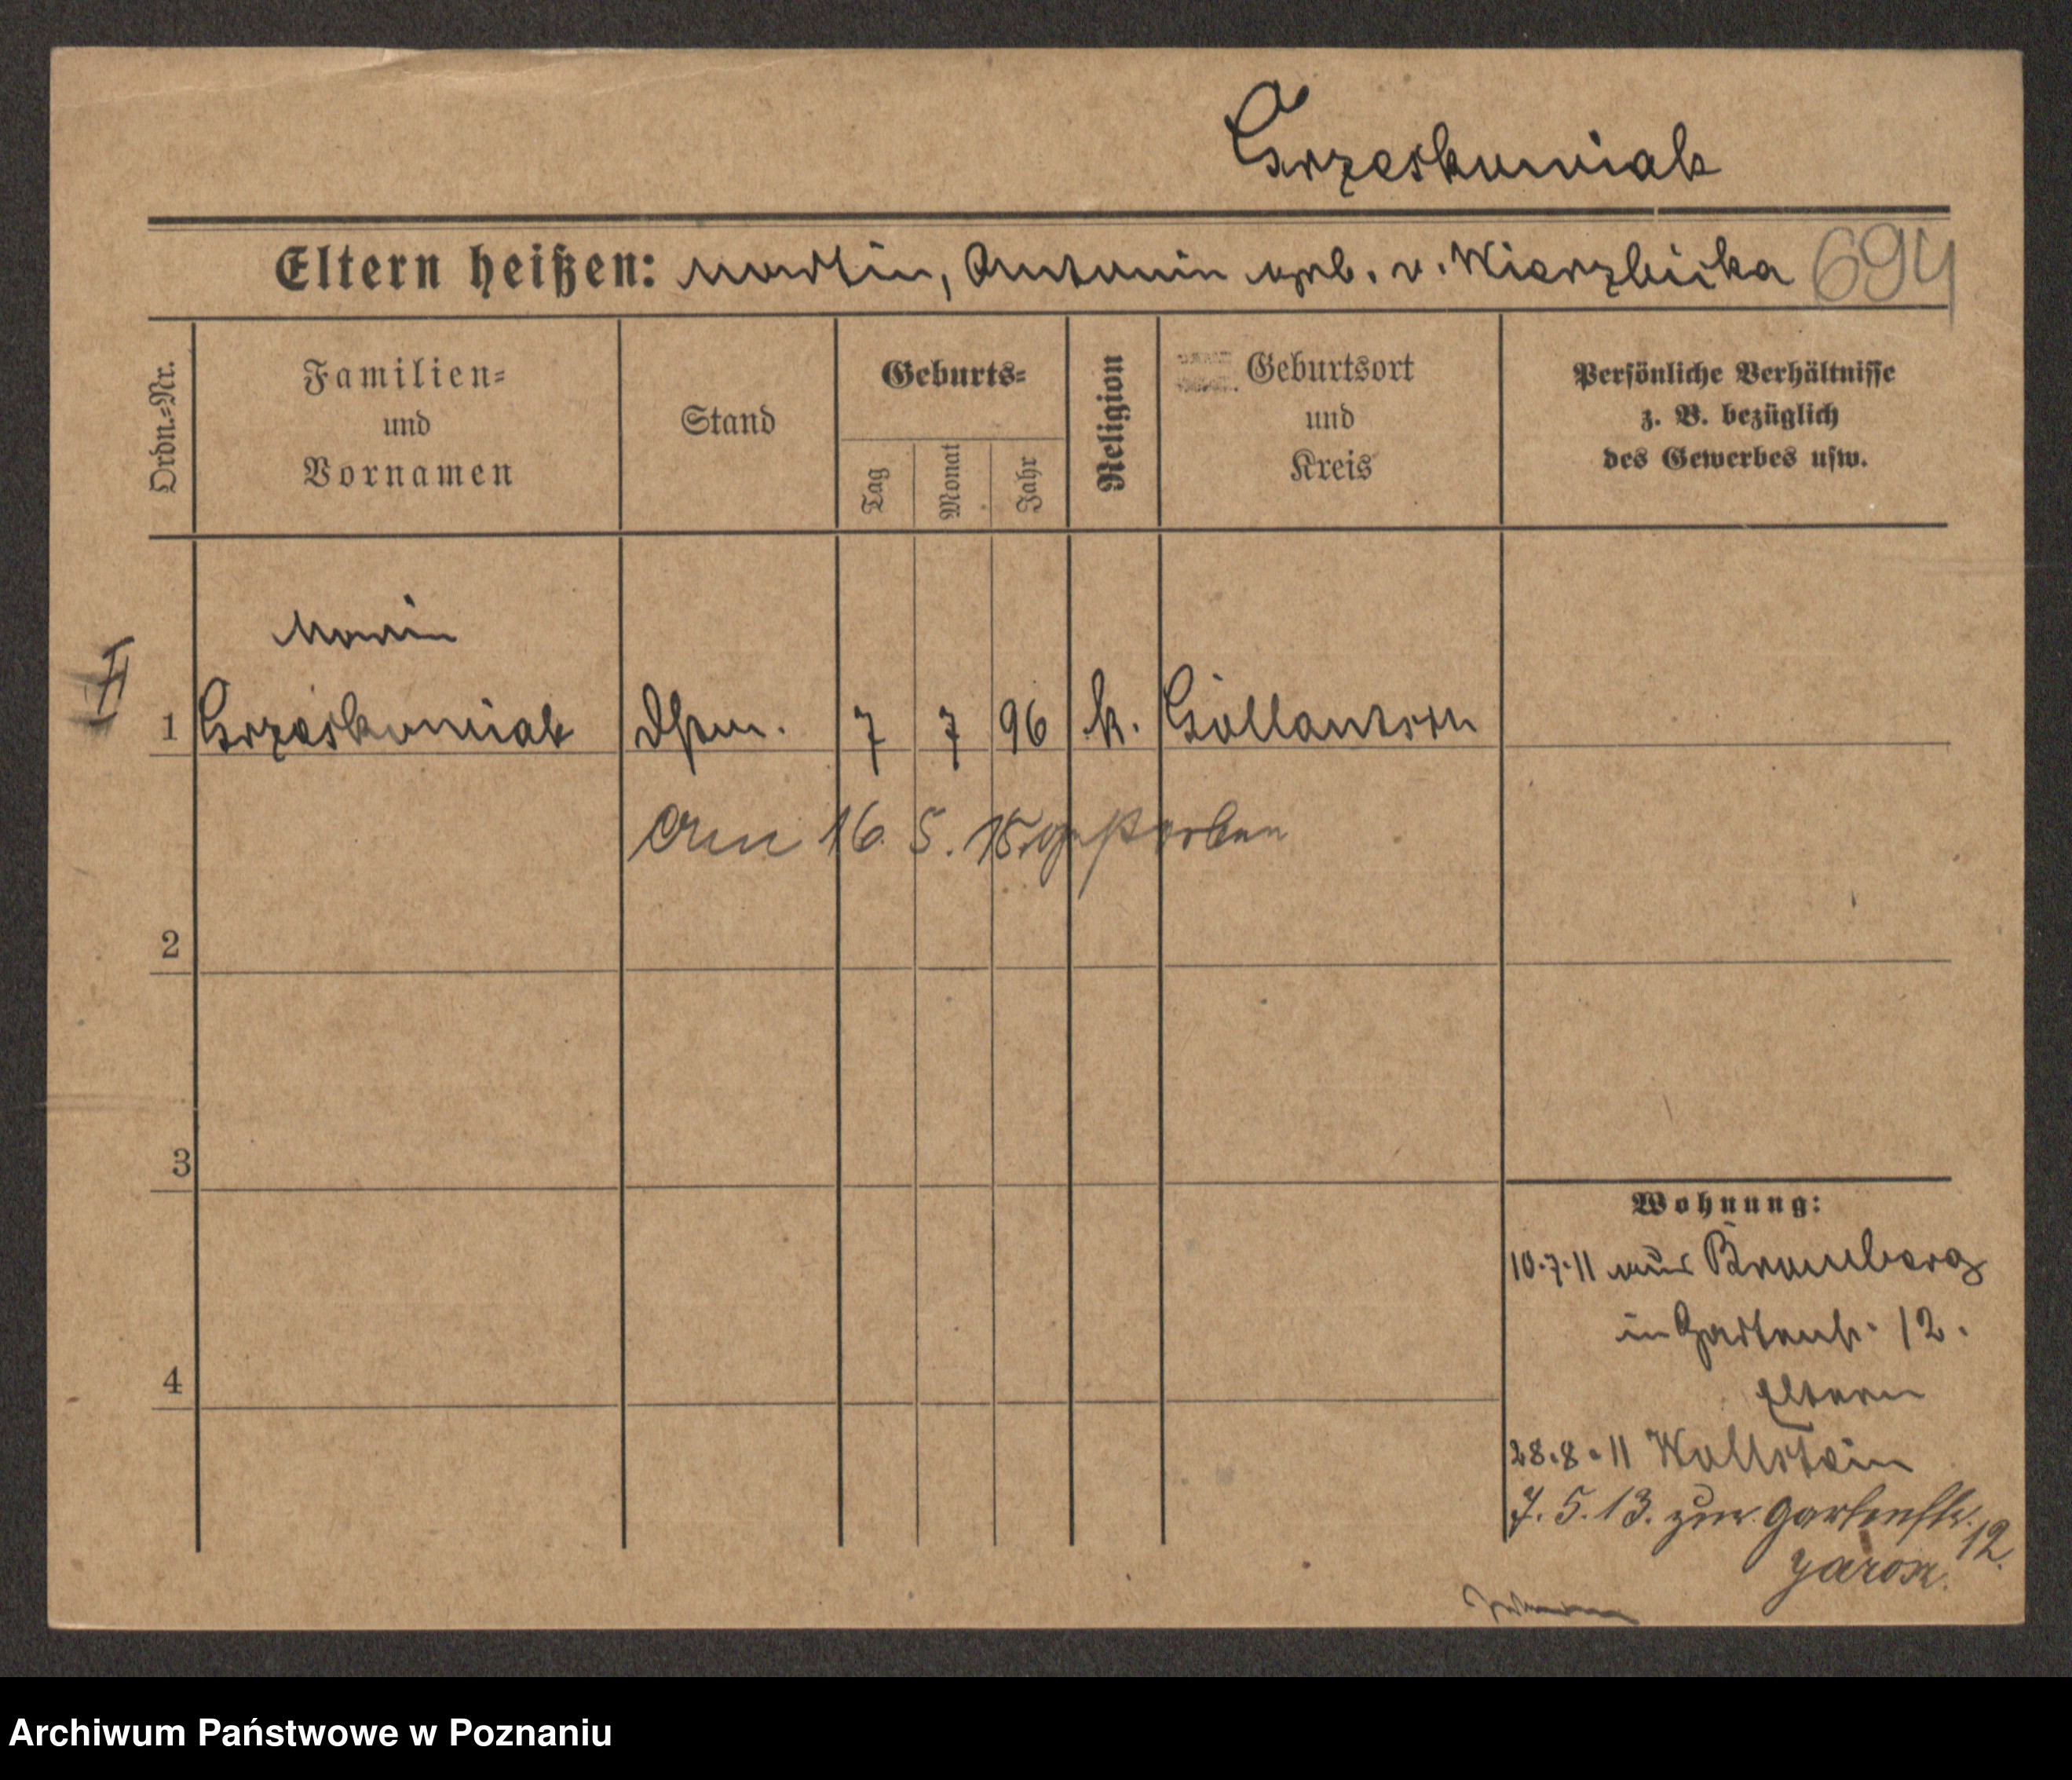 Grzeskowiak
Eltern heißen: Martin, Antonin geb. v. Wierzbicka 694
Ordn.-Nr.
Familien-
und
Vornamen
Stand
Geburts-
Tag
Monat
Jahr
Religion
Geburtsort
und
Kreis
Persönliche Verhältnisse
z. B. bezüglich
des Gewerbes usw.
Maria
1 Grzeskowiak 7 7 96 k. Gollantsch
am 16. 5. 15 gestorben
2
3
4
Wohnung:
10.7.11 aus Bromberg
in Gartenstr. 12.
Eltern
28.8.11 Wollstein
7. 5. 13. zur. Gartenstr. 12.
Archiwum Państwowe w Poznaniu